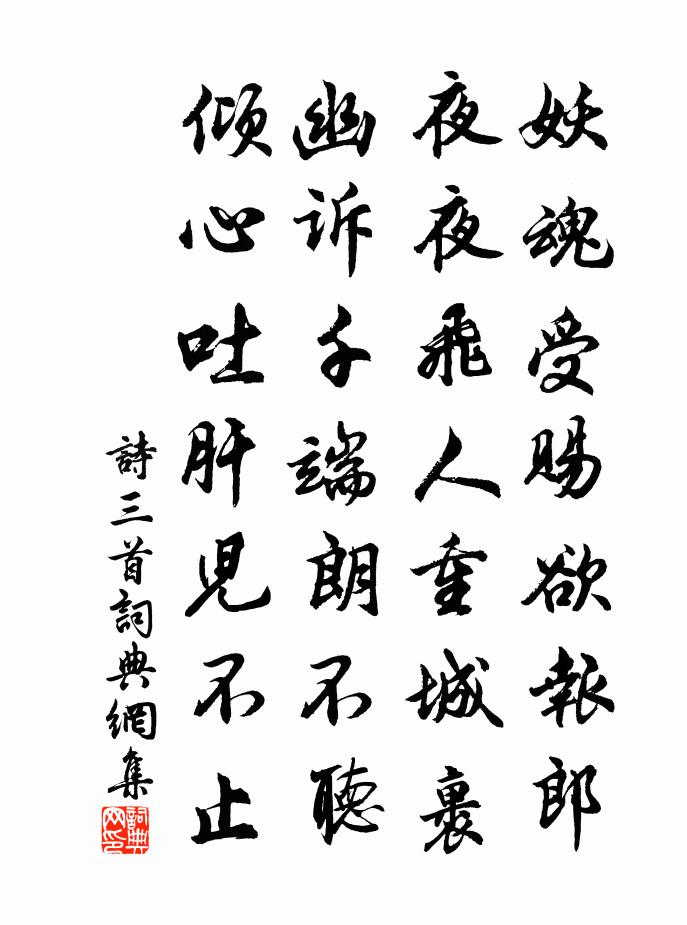 妖魂受賜欲報郎
夜夜飛人重城裏
幽訴千端朗不聽
傾心吐肝兒不止
詩三首詞典網集
詞典网印